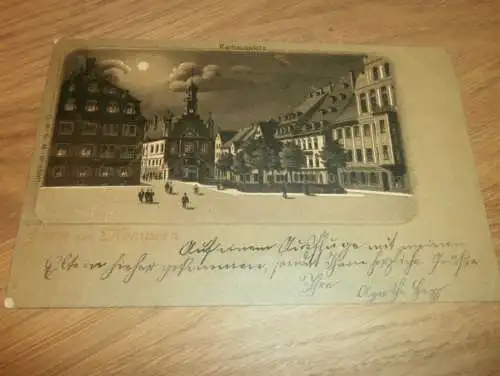 Rathausplatz
Gruss aus
Auf einem Ausfluge mit meinen
Eltern hieher gekommen, sendet Ihnen herzliche Grüße
Ihre